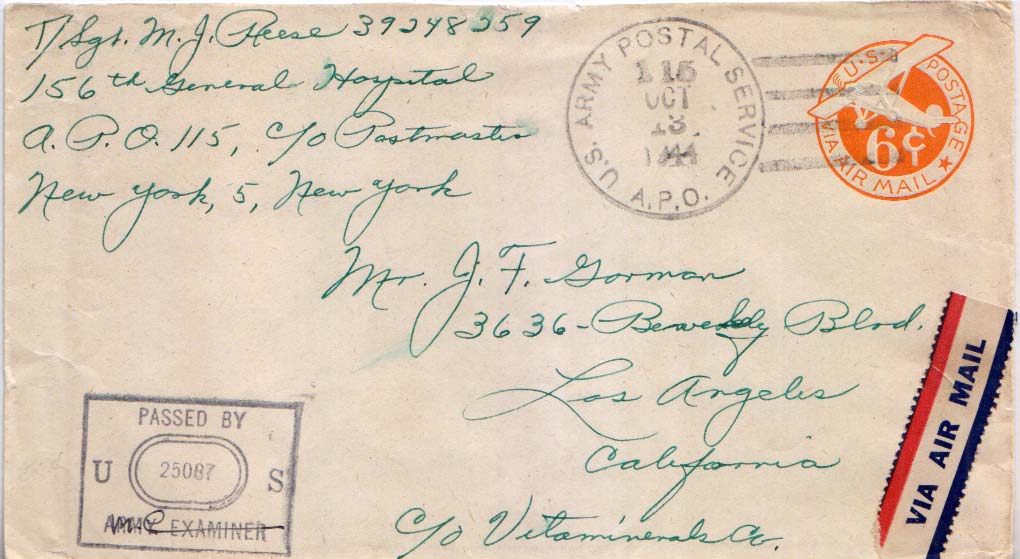 T/Sgt. M. J. Reese 39248359
156th General Hospital
A. P. O. 115, c/o Postmaster
New York, 5, New York
U.S. ARMY POSTAL SERVICE
115
OCT
13
1944
A.P.O.
U.S. POSTAGE
6¢
VIA AIR MAIL
Mr. J. F. Gorman
3636 - Beverly Blvd.
Los Angeles
California
c/o Vitaminerals Co.
VIA AIR MAIL
PASSED BY
U 25087 S
ARMY EXAMINER